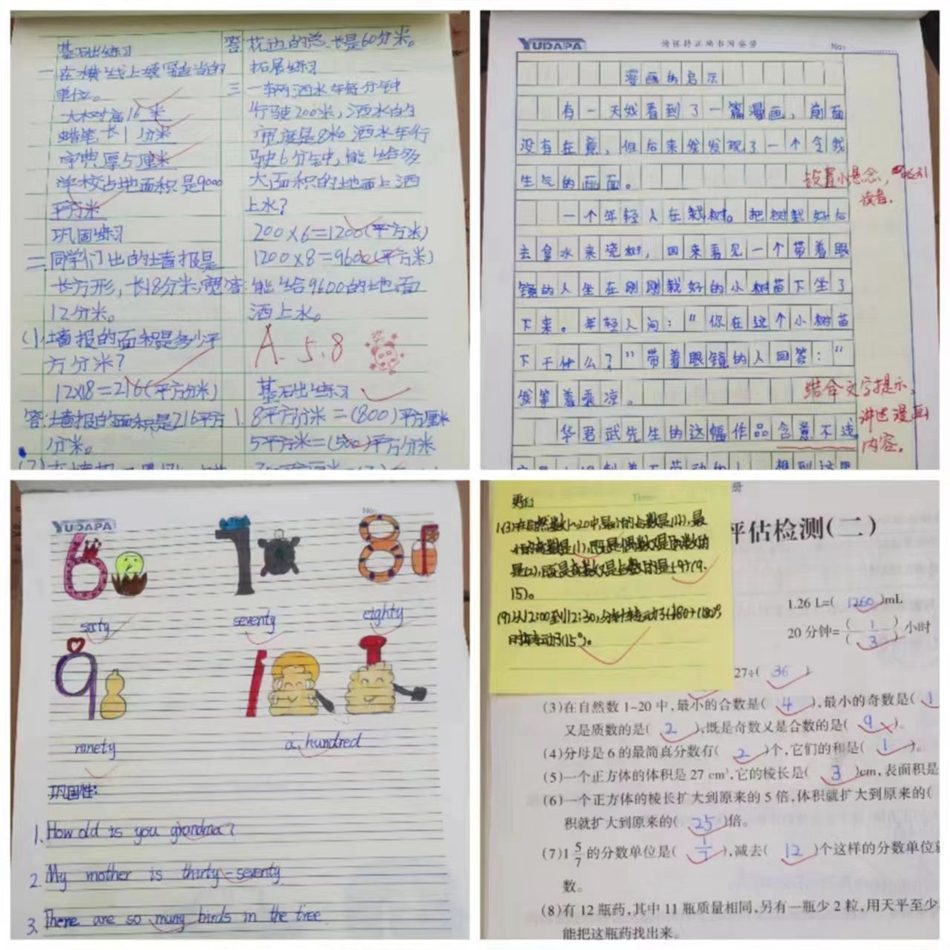 基础练习
一在横线上填写适当的
单位。
大树高16米
蜡笔长1分米
字典厚5厘米
学校占地面积是9000
平方米
巩固练习
二、同学们出的墙报是
长方形,长18分米,宽
12分米。
(1)墙报的面积是多少平
方分米?
12×18=216(平方分米)
答:墙报的面积是216平方
分米。
答花边的总长是60分米。
拓展练习
三一辆洒水车每分钟
行驶200米,洒水的
宽度是8米。洒水车行
驶6分钟,能给多
大面积的地面上洒
上水?
200×6=1200(平方米)
1200×8=9600(平方米)
答:能给9600的地面
洒上水。
A. 5.8
基础练习
1.8平方分米=(800)平方厘米
5平方米=(500)平方分米
YUDAPA
请保持正确书写姿势
No:
漫画的启示
有一天我看到了一篇漫画,前面
没有在意,但后来我发现了一个令我
生气的画面。
设置小悬念,吸引
读者。
一个年轻人在栽树。把树栽好后
去拿水来浇树,回来看见一个带着眼
镜的人坐在刚刚栽好的小树苗下坐了
下来。年轻人问:“你在这个小树苗
下干什么?”带着眼镜的人回答:“
我等着乘凉。
结合文字提示,
讲述漫画
内容。
华君武先生的这幅作品含意不浅
YUDAPA
No:
6 7 8
sixty seventy eighty
9 1
ninety a hundred
巩固性:
1. How old is you grandma?
2. My mother is thirty-seventy
3. There are so many birds in the tree
Time:
更正:
评估检测(二)
1.26 L=( 1260 )mL
20 分钟=( 1/3 )小时
27÷( 36
(3)在自然数 1~20 中,最小的合数是( 4 ),最小的奇数是( 1
又是质数的是( 2 );既是奇数又是合数的是( 9 )。
(4)分母是 6 的最简真分数有( 2 )个,它们的和是( 1 )。
(5)一个正方体的体积是 27 cm³,它的棱长是( 3 )cm,表面积是
(6)一个正方体的棱长扩大到原来的 5 倍,体积就扩大到原来的(
积就扩大到原来的( 25 )倍。
(7)1 5/7 的分数单位是( 1/7 ),减去( 12 )个这样的分数单位就
数。
(8)有 12 瓶药,其中 11 瓶质量相同,另有一瓶少 2 粒,用天平至少
能把这瓶药找出来。